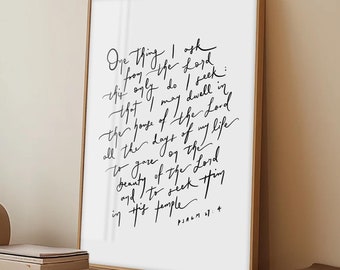 One thing I ask
from the Lord
this only do I seek:
that I may dwell in
the house of the Lord
all the days of my life
to gaze on the
beauty of the Lord
and to seek Him
in His temple
PSALM 27.4